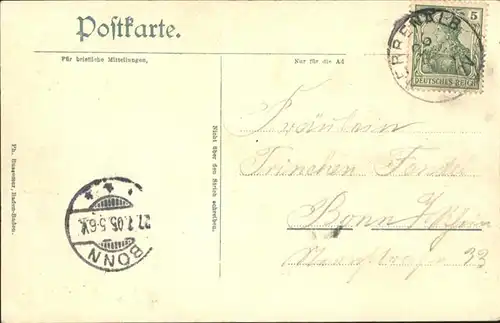 Postkarte.
Für briefliche Mitteilungen,
Nur für die Ad
Ph. Hussomar, Baden-Baden.
Nicht über den Strich schreiben.
5
DEUTSCHES REICH
HERRENALB
26
27.7.05.5-6N.
BONN
Fräulein
Trinchen
Bonn
33